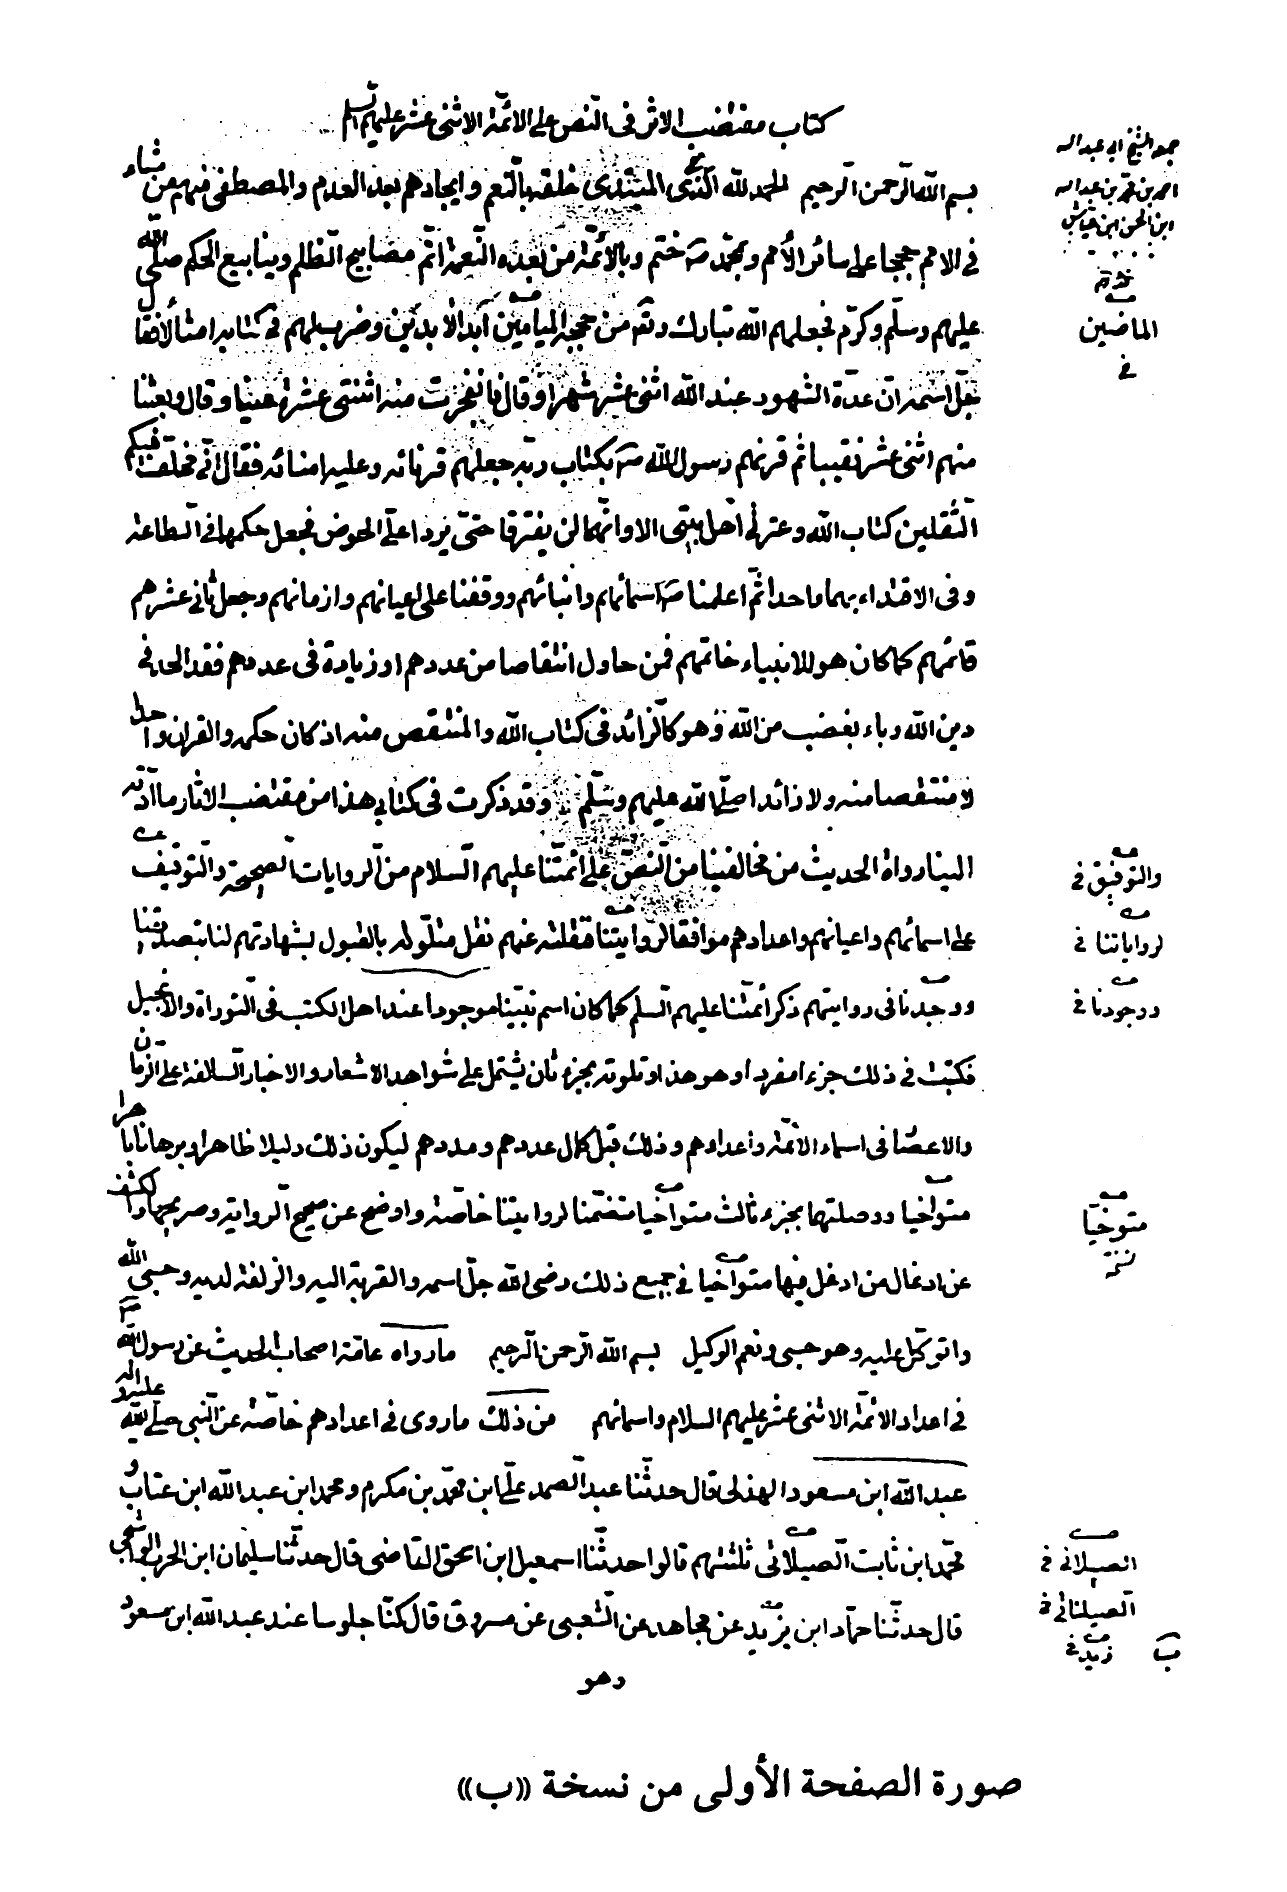 كتاب مقتضب الاثر في النص على الائمة الاثنى عشر عليهم السلم
جمع الشيخ ابي عبد الله
احمد بن محمد بن عبد الله
ابن الحسن ابن عياش
بسم الله الرحمن الرحيم الحمد لله الذي المبتدى خلقه بالنعم و ايجادهم بعد العدم والمصطفى منهم من شاء
في الامم حججا على سائر الأمم وبمحمد ص ختم وبالأئمة من بعده النعمة اتم مصابيح الظلم وينابيع الحكم صلى الله
عليهم وسلم وكرم فجعلهم الله تبارك وتعالى من حججه الميامين أبد الأبدين وضرب لهم في كتابه امثالا فقال
الماضين
في
جل اسمه ان عدة الشهور عند الله اثنى عشر شهرا وقال فانفجرت منه اثنتى عشرة عينا وقال وبعثنا
منهم اثنى عشر نقيبا ثم قرنهم رسول الله ص بكتاب ربه جعلهم قرنائه وعليه امنائه فقال اني مخلف فيكم
الثقلين كتاب الله وعترتي أهل بيتى الا وانهما لن يفترقا حتى يردا على الحوض فجعل حكمها في الطاعة
وفى الاقتداء بهما واحدا ثم اعلمنا ص اسمائهم وانبائهم ووقفنا على اعيانهم وازمانهم وجعل ثاني عشرهم
قائمهم كما كان هو للانبياء خاتمهم فمن حاول انتقاصا من عددهم او زيادة في عددهم فقد الحد في
دين الله وباء بغضب من الله وهو كالزائد في كتاب الله والمنتقص منه اذ كان حكمه والقران واحدا
لا منتقصا منه ولا زائدا صلى الله عليهم وسلم وقد ذكرت في كتابي هذا من مقتضب الاثار ما أدته
الينا رواة الحديث من مخالفينا من النص على ائمتنا عليهم السلام من الروايات الصحيحة والتوقيف
والتوفيق في
على اسمائهم واعيانهم واعدادهم موافقا لروايتنا فنقلته عنهم نقل متلو له بالقبول بشهادتهم لنا بتصديقنا
لرواياتنا في
ووجدنا في روايتهم ذكر أئمتنا عليهم السلم كما كان اسم نبينا موجودا عند اهل الكتب في التوراة والانجيل
ووجودنا في
فكتبت في ذلك جزءا مفردا وهو هذا وتلوته بجزء ثان يشتمل على شواهد الاشعار والاخبار السالفة على الزمان
والاعصا في اسماء الأئمة واعدادهم وذلك قبل كمال عددهم ومددهم ليكون ذلك دليلا ظاهرا وبرهانا باهرا
متواخيا ووصلتها بجزء ثالث متواخيا متضمنا لروايتنا خاصة واوضح عن صحيح الرواية وصريحها واكشف
متوخيا
نسخة
عن ادغال من ادغل فيها متواخيا في جميع ذلك رضى الله جل اسمه والقربة اليه والزلفة لديه وحسبي الله
واتوكل عليه وهو حسبي ونعم الوكيل بسم الله الرحمن الرحيم ما رواه عامة اصحاب الحديث عن رسول الله ص
في اعداد الائمة الاثنى عشر عليهم السلام واسمائهم من ذلك ما روى في اعدادهم خاصة عن النبي صلى الله عليه واله
عبد الله ابن مسعود الهذلى قال حدثنا عبد الصمد على ابن محمد بن مكرم ومحمد ابن عبد الله ابن عتاب و
محمد ابن ثابت الصيلاني ثلثتهم قالوا حدثنا اسمعيل ابن اسحق القاضى قال حدثنا سليمان ابن الحرب الواشجي
الصيلاني في
الصيلناني في
قال حدثنا حماد ابن يزيد عن مجاهد عن الشعبى عن مسروق قال كنا جلوسا عند عبد الله ابن مسعود
زيد في
ب
وهو
صورة الصفحة الأولى من نسخة ((ب))